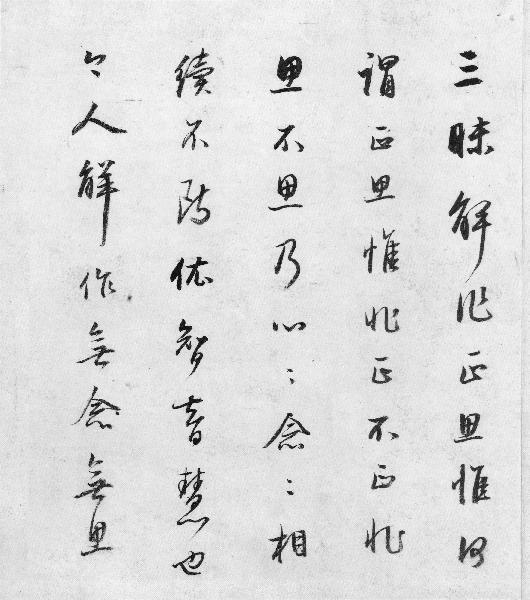 三昧解作正思惟何
謂正思惟非正不正非
思不思乃心〻念〻相
續不依智音慧也
今人解作無念無思